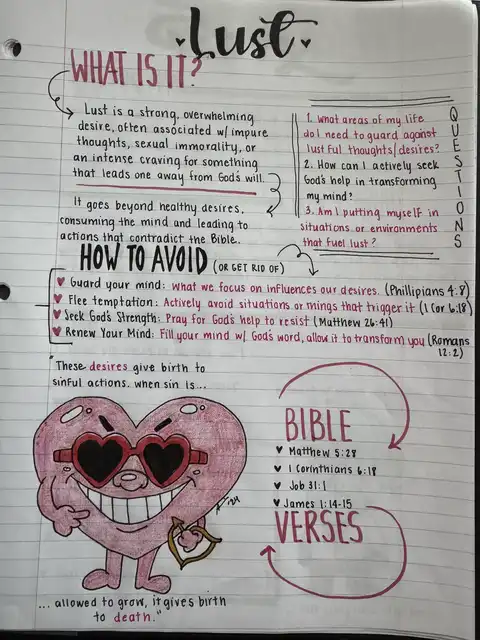 Lust
WHAT IS IT?
Lust is a strong, overwhelming
desire, often associated w/ impure
thoughts, sexual immorality, or
an intense craving for something
that leads one away from God's will.
It goes beyond healthy desires,
consuming the mind and leading to
actions that contradict the Bible.
1. What areas of my life
do I need to guard against
lustful thoughts/desires?
2. How can I actively seek
God's help in transforming
my mind?
3. Am I putting myself in
situations or environments
that fuel lust?
QUESTIONS
HOW TO AVOID (OR GET RID OF)
Guard your mind: What we focus on influences our desires. (Phillipians 4:8)
Flee temptation: Actively avoid situations or things that trigger it (1 Cor 6:18)
Seek God's Strength: Pray for God's help to resist (Matthew 26:41)
Renew Your Mind: Fill your mind w/ God's word, allow it to transform you (Romans
12:2)
"These desires give birth to
sinful actions. when sin is...
BIBLE
Matthew 5:28
1 Corinthians 6:18
Job 31:1
James 1:14-15
VERSES
... allowed to grow, it gives birth
to death."